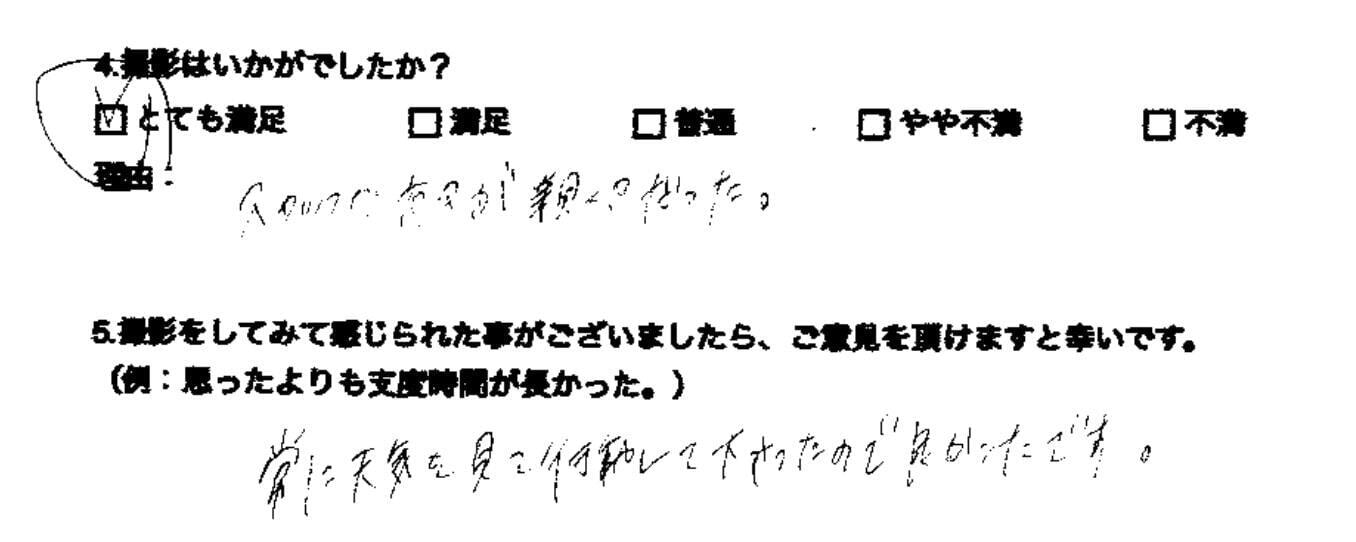 4.撮影はいかがでしたか?
☑とても満足 □満足 □普通 □やや不満 □不満
理由:
が親くった。
5.撮影をしてみて感じられた事がございましたら、ご意見を頂けますと幸いです。
(例:思ったよりも支度時間が長かった。)
常に天気を見て行動して下さったので良かったです。